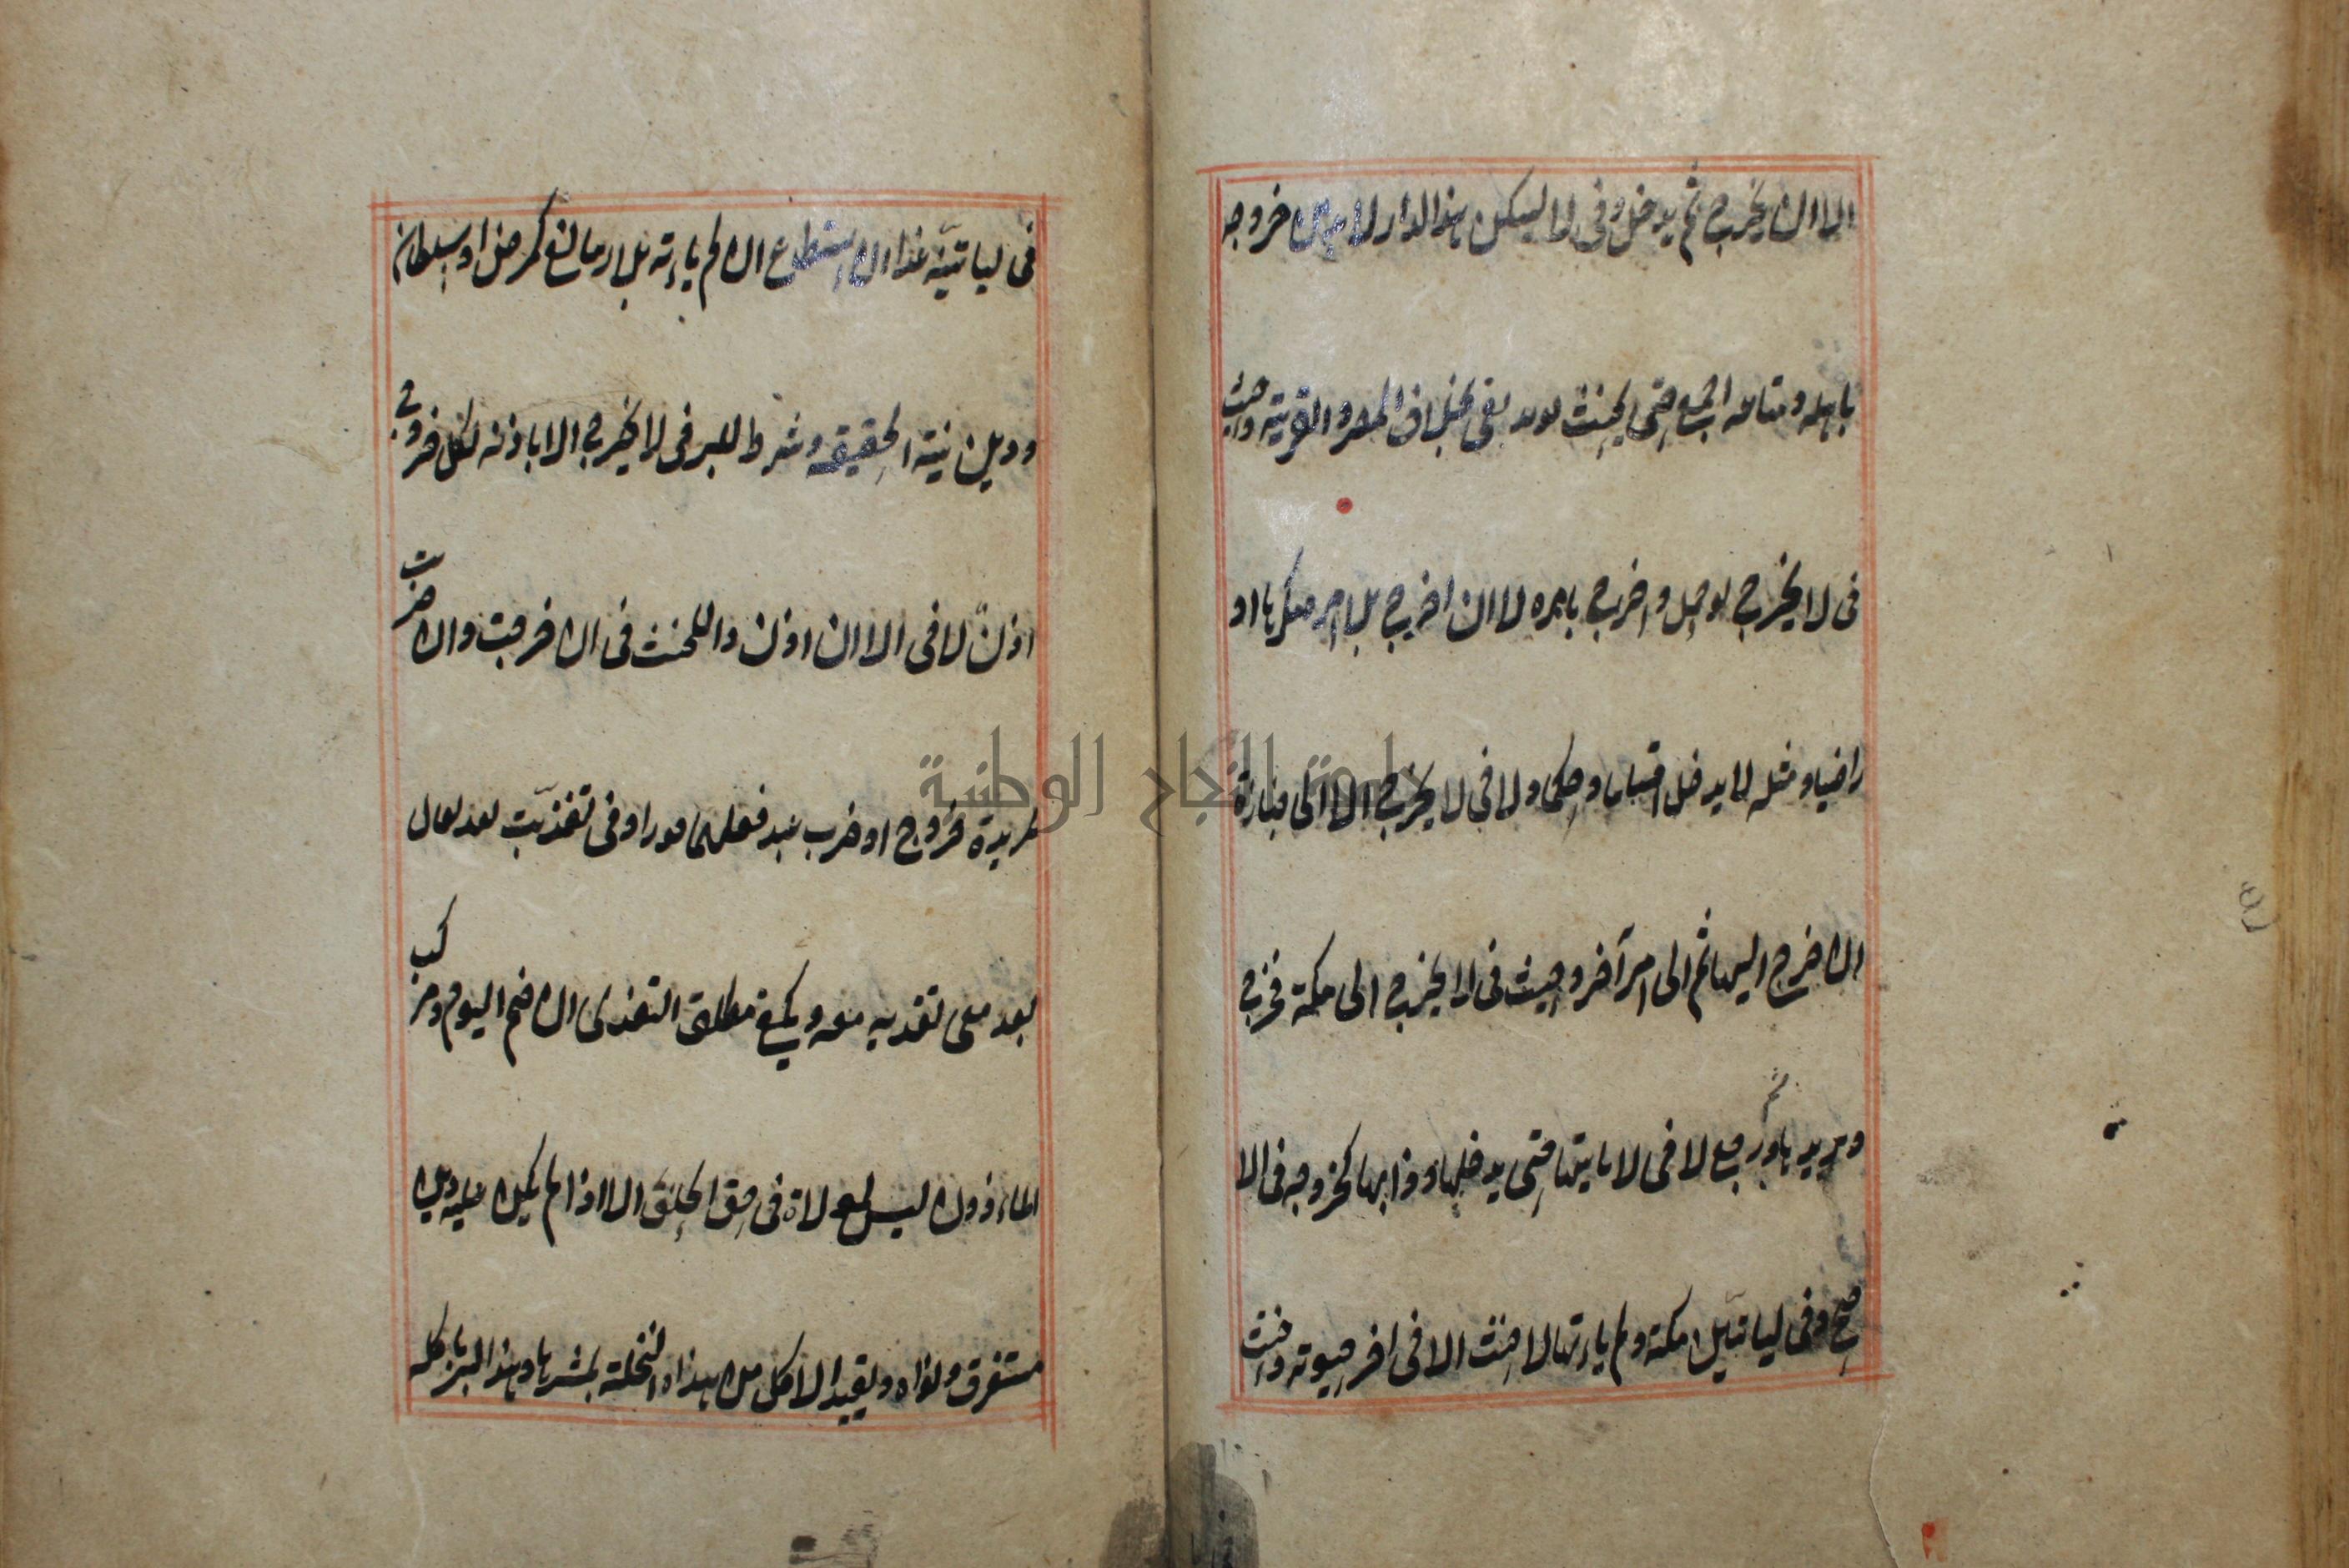 الا ان يخرج ثم يدخل وفى لا يسكن هذا الدار لا بد من خروجه
باهله ومتاعه اجمع حتى يحنث لوتد بقى بخلاف المصر والقرية وحنث
فى لا يخرج لو حمل واخرج بامره لا ان اخرج بلا امره مكرها او
راضيا ومثله لا يدخل اقساما وحكما ولا فى لا يخرج الا الى جنازة
ان خرج اليها ثم الى امر آخر وحنث فى لا يخرج الى مكة فخرج
ويريدها ثم رجع لا فى لا ياتيها حتى يدخلها وذهابها كخروجه فى الا
صح وفى لياتين مكة ولم ياتها لا حنث الا فى آخر حيوته وحنث
فى لياتينه غدا ان استطاع ان لم ياته بلا مانع كمرض او سلطان
ودين نية الحقيقة وشرط للبر فى لا يخرج الا باذنه لكل خروج
اذن لا فى الا ان اذن والحنث فى ان خرجت وان ضربت
لمريدة خروج او ضرب عبد فعلهما فورا وفى تغذيت بعد تعال
تغد معى تغديه معه ويكفى مطلق التغدى ان ضم اليوم ومركب
الماذون ليس لمولاه فى حق الحلف الا اذا لم يكن عليه دين
مستغرق ونواه ويقيد الاكل من هذه النخلة بثمرها وهذا البر باكله
جامعة النجاح الوطنية